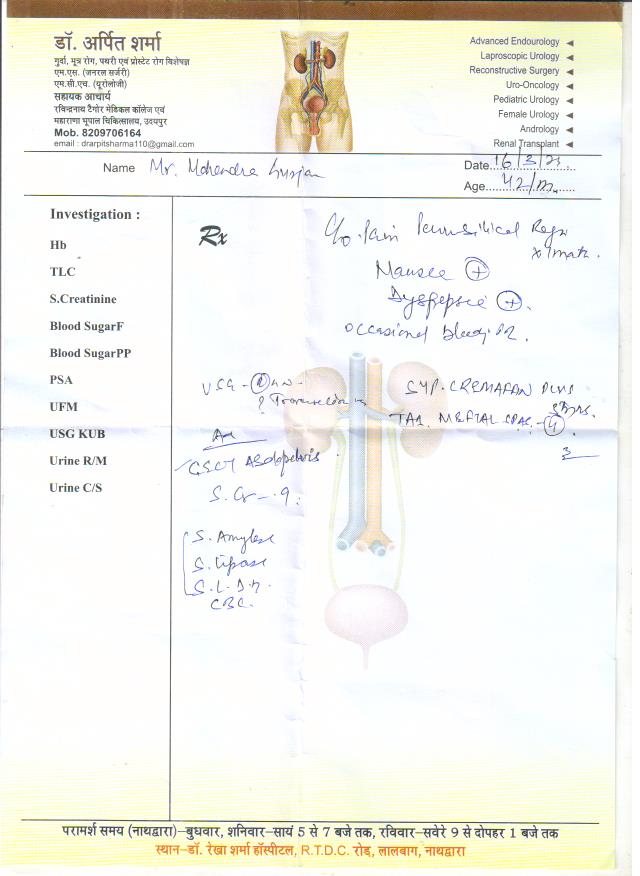 डॉ. अर्पित शर्मा
गुर्दा, मूत्र रोग, पथरी एवं प्रोस्टेट रोग विशेषज्ञ
एम.एस. (जनरल सर्जरी)
एम.सी.एच. (यूरोलोजी)
सहायक आचार्य
रविन्द्रनाथ टैगोर मेडिकल कॉलेज एवं
महाराणा भूपाल चिकित्सालय, उदयपुर
Mob. 8209706164
email : drarpitsharma110@gmail.com
Advanced Endourology
Laproscopic Urology
Reconstructive Surgery
Uro-Oncology
Pediatric Urology
Female Urology
Andrology
Renal Transplant
Name Mr. Mahendra
Date 16/3/
Age 42/m
Investigation :
Hb
TLC
S.Creatinine
Blood SugarF
Blood SugarPP
PSA
UFM
USG KUB
Urine R/M
Urine C/S
Rx
C/o Pain Periumbilical Region
Nausea +
Dyspepsia +
Occasional bleeding PR.
USG -
SYP. CREMAFFIN PLUS
TAB. MEFTAL SPAS
CECT Abdopelvis
S. Cr - .9
S. Amylase
S. Lipase
S. L.D.H.
CBC.
परामर्श समय (नाथद्वारा)–बुधवार, शनिवार–सायं 5 से 7 बजे तक, रविवार–सवेरे 9 से दोपहर 1 बजे तक
स्थान–डॉ. रेखा शर्मा हॉस्पीटल, R.T.D.C. रोड, लालबाग, नाथद्वारा